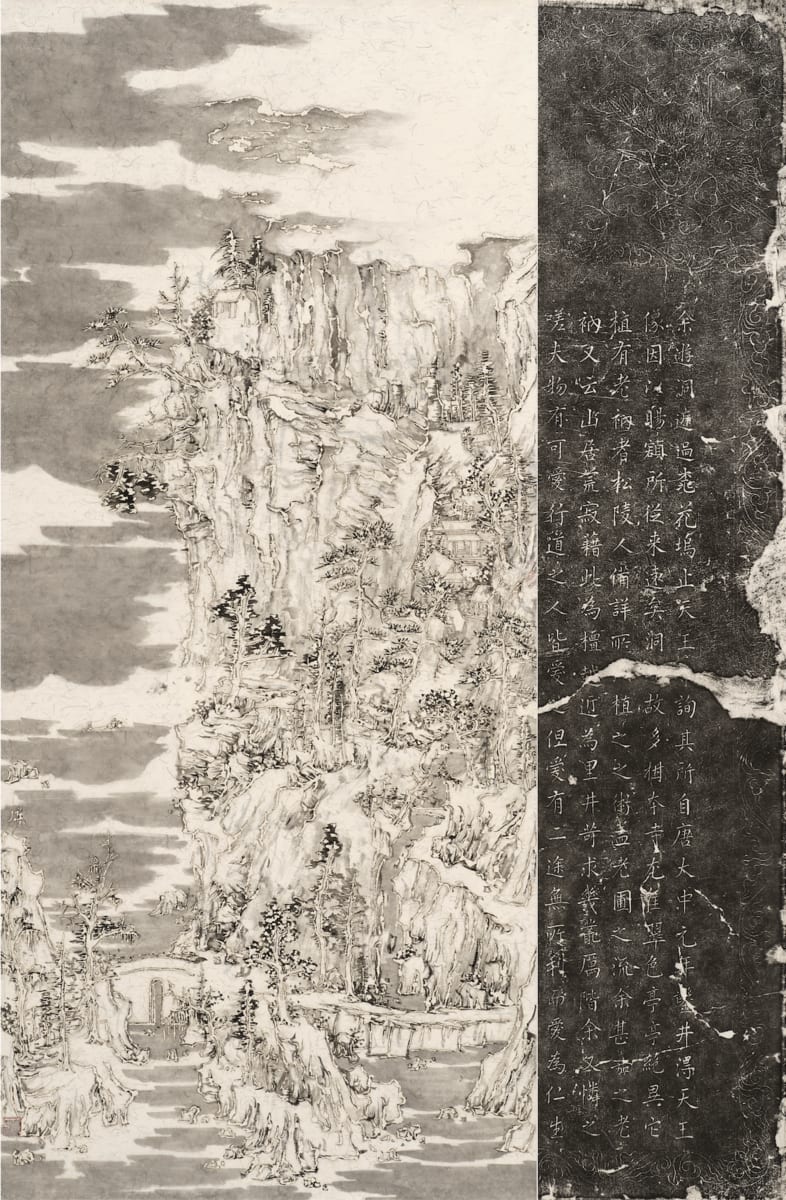 余遊洞過花塢止天王詢其所自唐大中元年井淂天王
像因以賜額所從來遠矣洞故多本寺尤翠色亭亭絶異它
植有老衲者松陵人備詳所植之之術盖老圃之流余甚嘉之老
衲又云山居荒寂藉此為檀近為里井苛求幾厲階余又憐之
嗟夫物有可愛行道之人皆愛但愛有二途無所利而愛為仁生